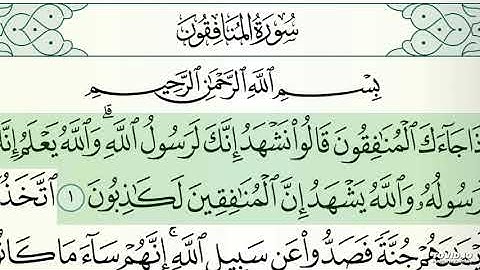 سُورَةُ الْمُنَافِقُونَ
بِسْمِ اللَّهِ الرَّحْمَٰنِ الرَّحِيمِ
ذَا جَاءَكَ الْمُنَافِقُونَ قَالُوا نَشْهَدُ إِنَّكَ لَرَسُولُ اللَّهِ ۗ وَاللَّهُ يَعْلَمُ إِنَّ
رَسُولُهُ وَاللَّهُ يَشْهَدُ إِنَّ الْمُنَافِقِينَ لَكَاذِبُونَ ١ اتَّخَذُ
جُنَّةً فَصَدُّوا عَنْ سَبِيلِ اللَّهِ ۚ إِنَّهُمْ سَاءَ مَا كَانُ